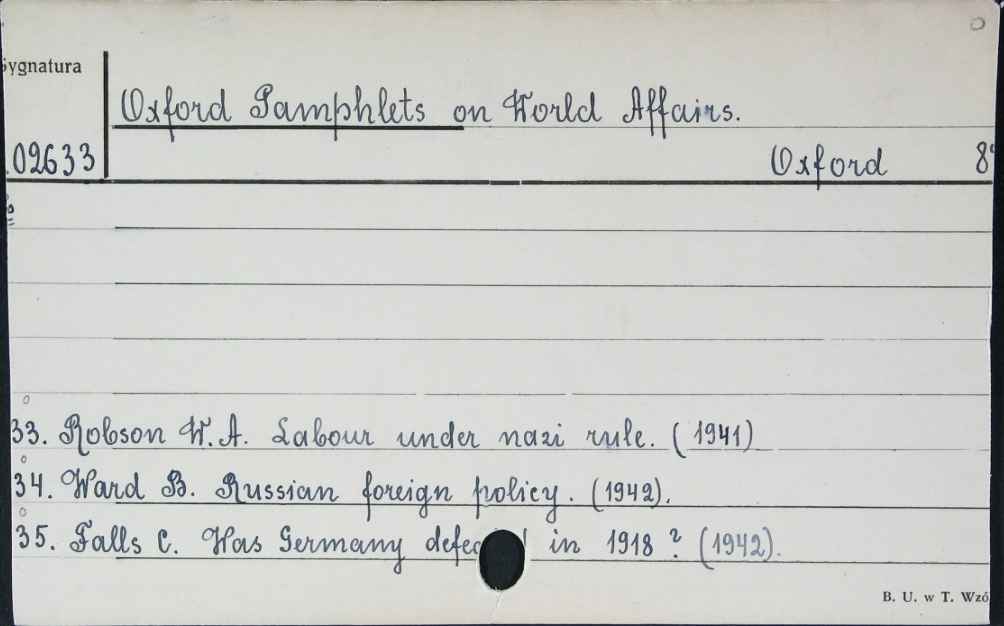 Sygnatura
Oxford Pamphlets on World Affairs.
02633
Oxford 8°
33. Robson W.A. Labour under nazi rule. (1941)
34. Ward B. Russian foreign policy. (1942).
35. Falls C. Was Germany in 1918? (1942).
B. U. w T. Wzó